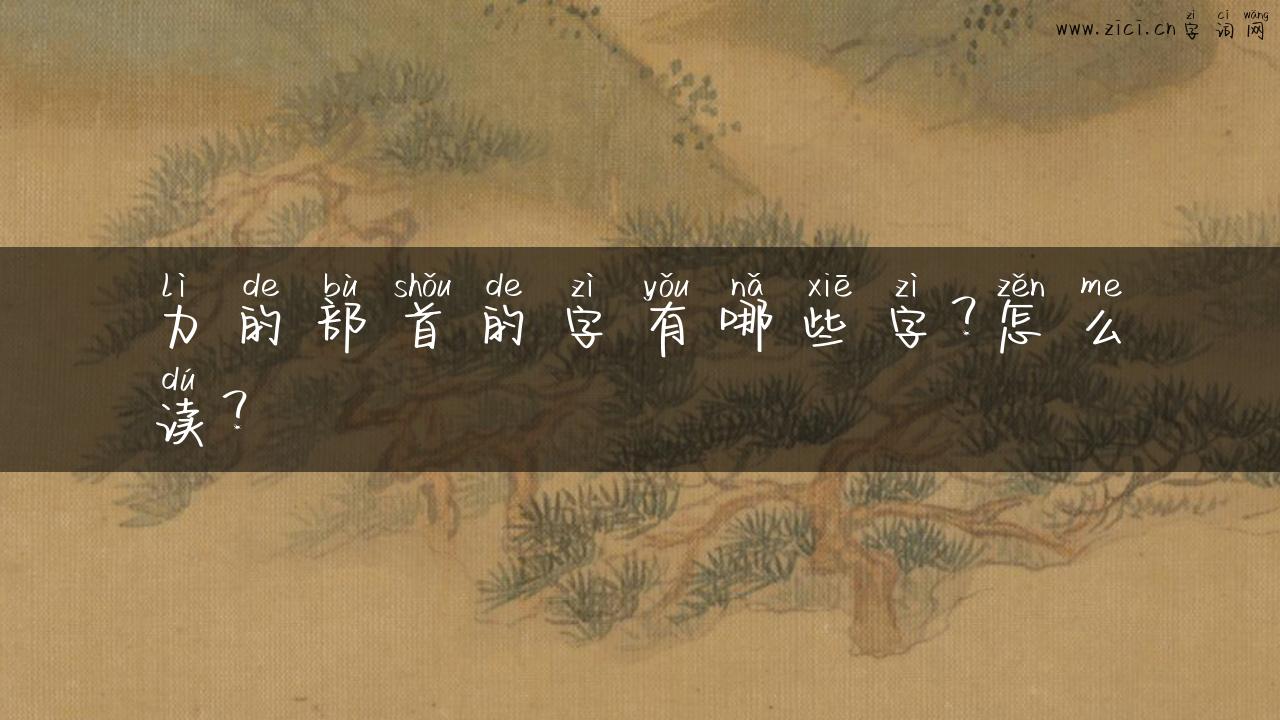 www.zici.cn字词网
zì cí wǎng
lì de bù shǒu de zì yǒu nǎ xiē zì zěn me
力的部首的字有哪些字？怎么
dú
读？